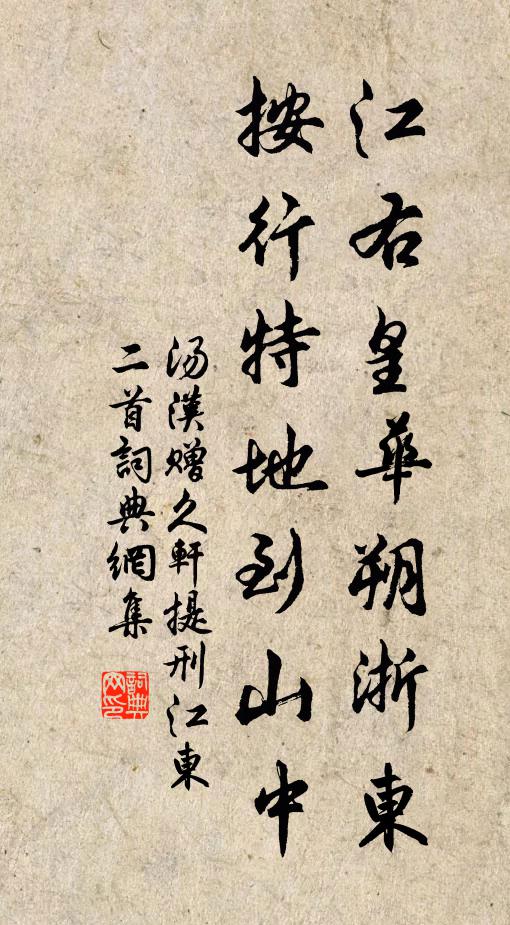 江右皇華朔浙東
按行特地到山中
汤漢贈久軒提刑江東
二首詞典網集
詞典
网印